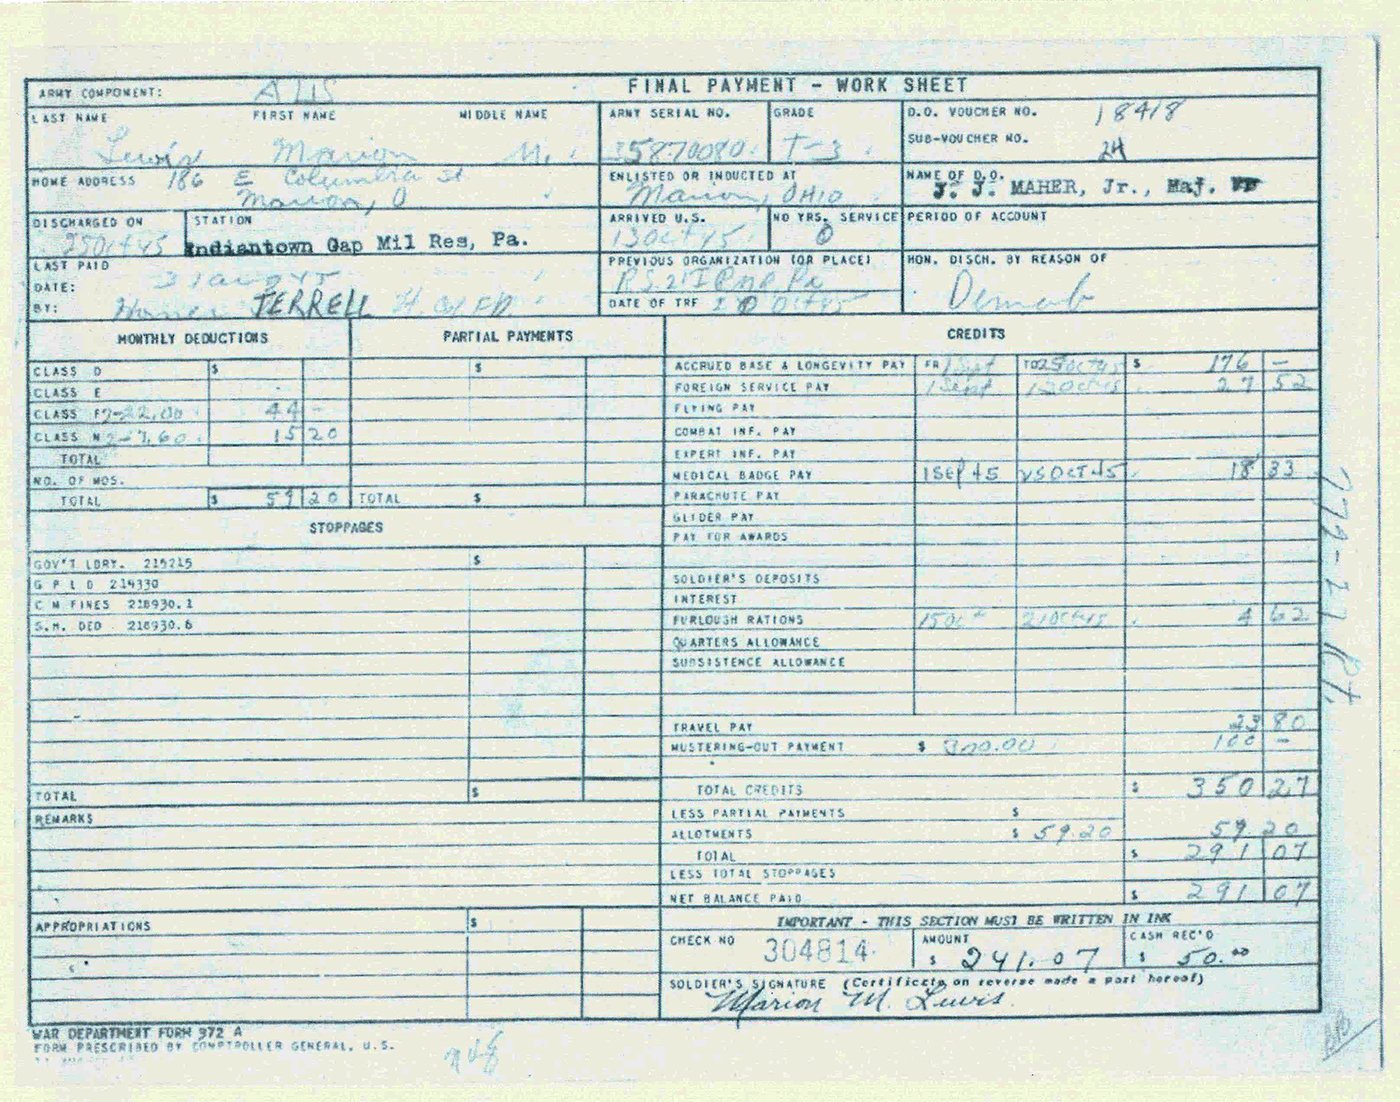 ARMY COMPONENT: AUS FINAL PAYMENT - WORK SHEET
LAST NAME FIRST NAME MIDDLE NAME ARMY SERIAL NO. GRADE D.O. VOUCHER NO. 18418
Lewis Marion M. 35870080 T-3 SUB-VOUCHER NO. 24
HOME ADDRESS 186 E Columbia St ENLISTED OR INDUCTED AT NAME OF D.O.
Marion, O Marion, OHIO J. J. MAHER, Jr., Maj.
DISCHARGED ON STATION ARRIVED U.S. NO YRS. SERVICE PERIOD OF ACCOUNT
25 Oct 45 Indiantown Gap Mil Res, Pa. 13 Oct 45 0
LAST PAID PREVIOUS ORGANIZATION (OR PLACE) HON. DISCH. BY REASON OF
DATE: 31 Aug 45 Demob
BY: TERRELL DATE OF TRF 20 Oct 45
MONTHLY DEDUCTIONS PARTIAL PAYMENTS CREDITS
CLASS D $ $ ACCRUED BASE & LONGEVITY PAY FR 1 Sept TO 25 Oct 45 $ 176 -
CLASS E FOREIGN SERVICE PAY 1 Sept 12 Oct 45 27 52
CLASS F 2-22.00 44 - FLYING PAY
CLASS N 2-7.60 15 20 COMBAT INF. PAY
TOTAL EXPERT INF. PAY
NO. OF MOS. MEDICAL BADGE PAY 1 Sep 45 25 Oct 45 18 33
TOTAL $ 59 20 TOTAL $ PARACHUTE PAY
STOPPAGES GLIDER PAY
PAY FOR AWARDS
GOV'T LDRY. 215215 $
G P L D 214330 SOLDIER'S DEPOSITS
C M FINES 218930.1 INTEREST
S.H. DED 218930.6 FURLOUGH RATIONS 15 Oct 21 Oct 45 4 62
QUARTERS ALLOWANCE
SUBSISTENCE ALLOWANCE
TRAVEL PAY 23 80
MUSTERING-OUT PAYMENT $ 300.00 100 -
TOTAL $ TOTAL CREDITS $ 350 27
REMARKS LESS PARTIAL PAYMENTS $
ALLOTMENTS $ 59.20 59 20
TOTAL $ 291 07
LESS TOTAL STOPPAGES
NET BALANCE PAID $ 291 07
APPROPRIATIONS $ IMPORTANT - THIS SECTION MUST BE WRITTEN IN INK
CHECK NO 304814 AMOUNT $ 241.07 CASH REC'D $ 50.00
SOLDIER'S SIGNATURE (Certificate on reverse made a part hereof)
Marion M. Lewis
WAR DEPARTMENT FORM 372 A
FORM PRESCRIBED BY COMPTROLLER GENERAL, U.S.